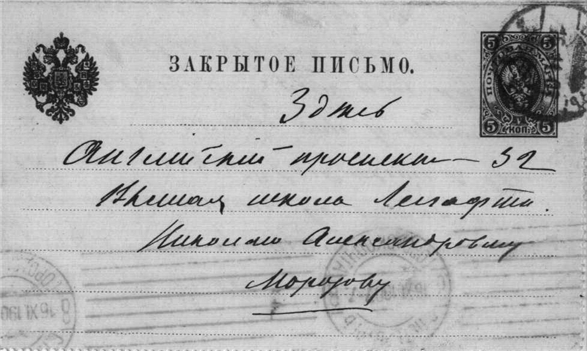 ЗАКРЫТОЕ ПИСЬМО.
5 5
ПОЧТОВАЯ МАРКА
5 КОП. 5
Здѣсь
Англійскій проспектъ – 32
Высшая школа Лесгафта.
Николаю Александровичу
Морозову